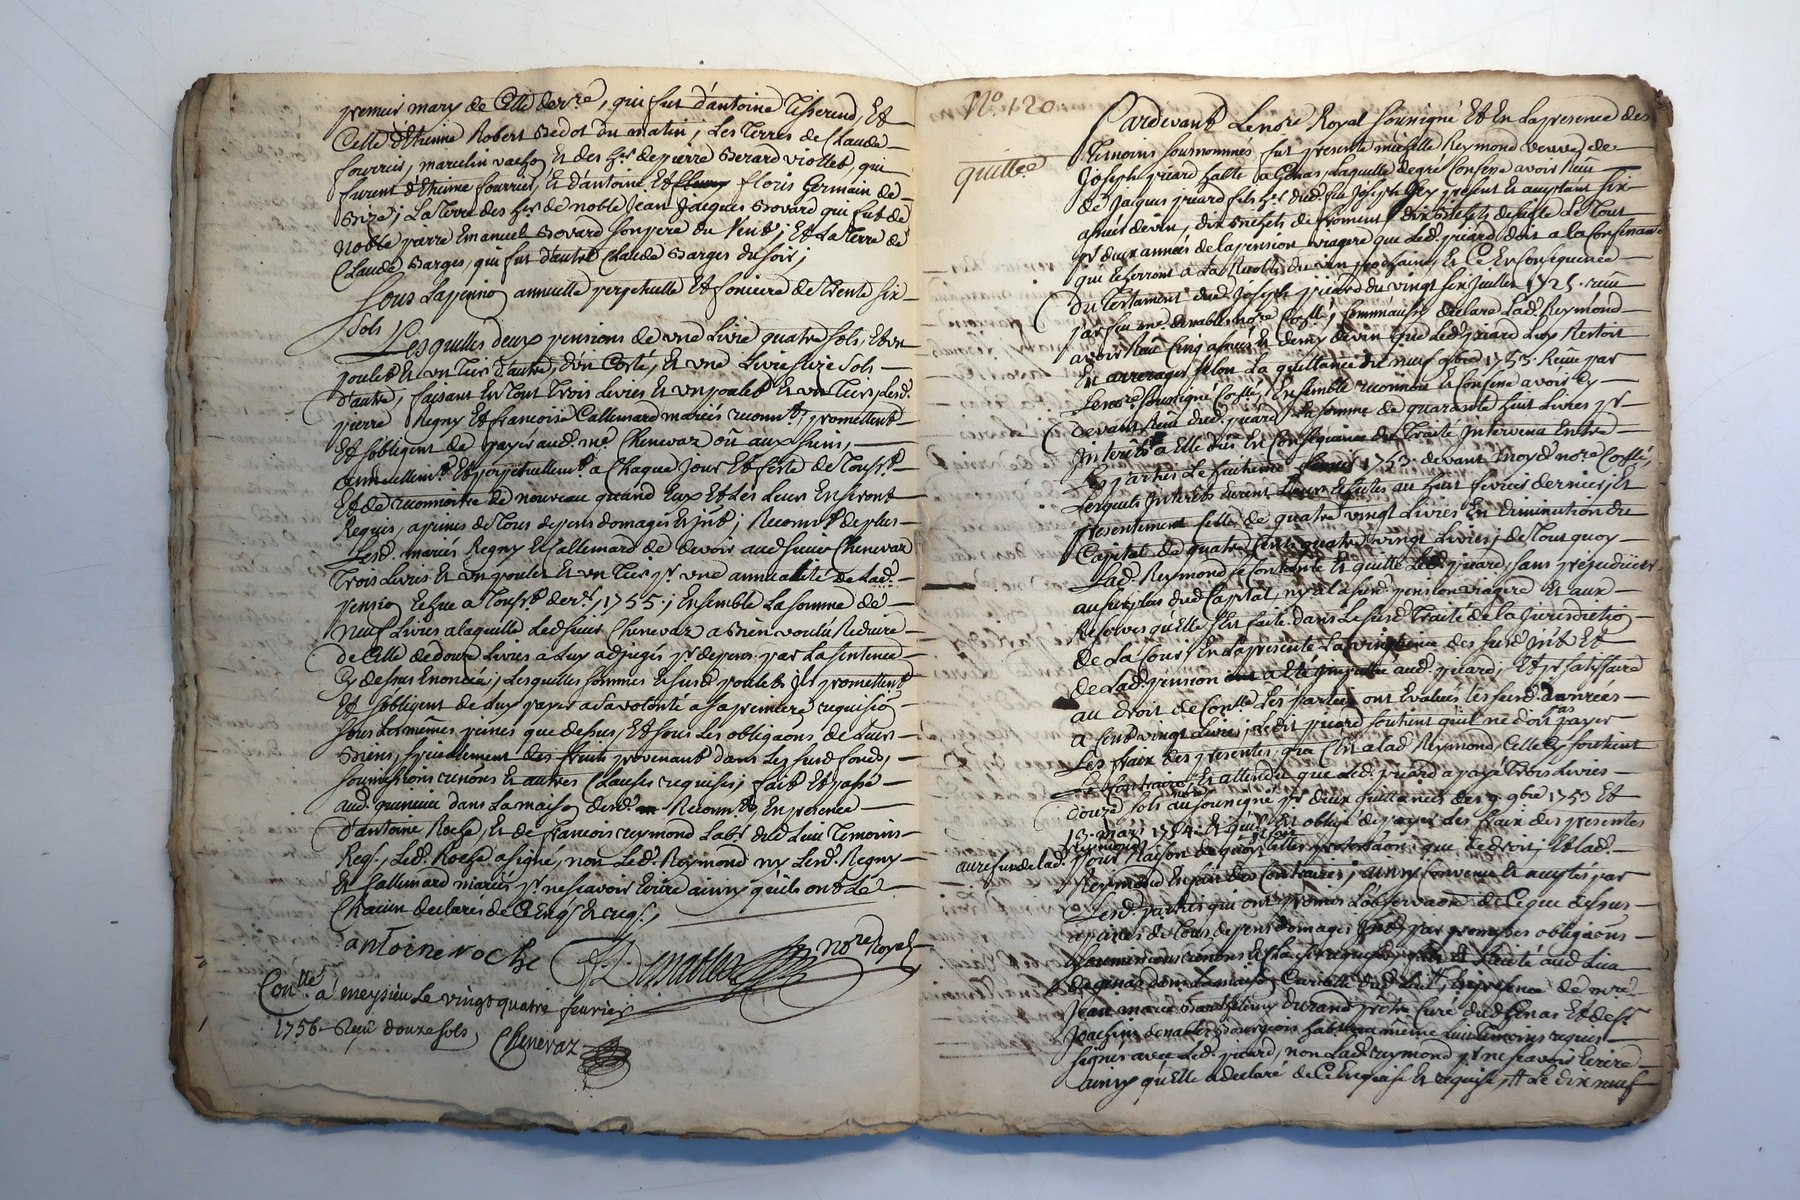 premier mary de Cette derre, qui fut d'antoine Tisserend, Et
Celle d'Etienne Robert Bedot du matin; Les Terres de Claude
fourrier, marcelin vacho Et des hrs de pierre Berard viollet, qui
furent d'Etienne fourrier, Et d'antoine Et floris Germain de
Bize; La Terre des hrs de noble Jean Jacques Bovard qui fut de
Noble pierre Emanuel Bovard son pere du Vent; Et La Terre de
Claude Barges, qui fut d'autre Claude Barges du soir;
Sous La pension annuelle perpetuelle Et fonciere de Trente six
sols
Lesquelles deux pensions de une Livre quatre sols, Et un
poulet Et un Tier d'autre, d'un Costé, Et une Livre seize sols
d'autre, faisant En tout Trois Livres Et un poulet Et un Tier, Lesd.
pierre Regny Et francoise Callemard mariés reconnts promettent
Et s'obligent de payer aud. me Chenevaz ou aux siens,
annuellemt Et perpetuellemt a Chaque jour Et feste de Tousts
Et de reconnoitre de nouveau quand Eux Et Les Leurs En seront
Requis, a peines de Tous depens domages Et jnts; Reconnt de plus
Lesd. mariés Regny Et Callemard de devoir aud sieur Chenevaz
Trois Livres Et un poulet Et un Tier pr une annualité de Lad.
pension Echue a Tousts derr, 1755; Ensemble La somme de
neuf Livres a laquelle Led sieur Chenevaz a Bien voulu Reduire
de Celle de douze Livres a Luy adjugés pr depens par La sentence
Cy dessus Enoncée; Lesquelles sommes Et susd poulets jls promettent
Et s'obligent de Luy payer a sa volonté a sa premiere requisio
sous Les mêmes peines que dessus, Et sous Les obligaons de Leurs
Biens, specialement des fruits provenant dans Les susd fonds,
soumissions renons Et autres Clauses requises; fait Et passé
aud. dans La maison desd. Reconnts En presence
d'antoine Roche, Et de francois reymond Labr dud Lieu Temoins
Reqs, Led. Roche a signé, non Led. Reymond ny Lesd. Regny
Et Callemard mariés pr ne scavoir Ecrire ainsy qu'ils ont Le
Chacun declarés de Ce Enqs Et reqs,
antoine roche nore Royal
Conllé a meysieu Le vingt quatre fevrier
1756. Reçû douze sols, Chenevaz
No. 120
quittce
Pardevant Le nore Royal soussigné Et En La presence des
Temoins sousnommés fut presente michelle Reymond veuve de
Joseph piard habte a Genas, Laquelle de gré Confesse avoir Reçu
de Jaques piard fils hr dud. feu Joseph jcy present Et aceptant six
anées de vin, dix Bichets de froment dix Bichets de seigle Le Tout
pr deux années de la pension viagere que Led. piard doit a la Confessante
qui Echerront a La Recolte du vin prochaine, Et Ce En Consequence
du Testament dud. Joseph piard du vingt six juillet 1725. reçu
par feu me denable nore Collé; Comm'aussi declare Lad. Reymond
avoir Reçu Cinq anées Et demy de vin que Led. piard Luy Restoit
En arrerages selon La quittance du neuf 9bre 1753. Reçue par
Le nore soussigné Collé; Ensemble reconnoit Et Confesse avoir Cy
devant Reçu dud. piard La somme de quarante huit Livres pr
jnterets a Elle dus En Consequence du Traité jntervenu Entre
Les parties Le huitieme 1753. devant moyd. nore Collé,
Lesquels jnterets Eurent Leurs Echutes au huit fevrier dernier, Et
presentement Celle de quatre vingt Livres En diminution du
Capital de quatre Cents quatre vingt Livres; de Tout quoy
Lad. Reymond se Contente Et quitte Led. piard, sans prejudicier
au surplus dud Capital, ny a La susd pension viagere Et aux
Reserves qu'Elle s'est faite dans Le susd Traité de la jurisdiction
de La Cour; des susd jnts Et
de Lad. pension aud. piard; Et pr satisfaire
au droit de Conlle Les parties ont Evalués Les susd. danrées
a Cent vingt Livres, Ledit piard soutient qu'il ne doit pas payer
Les fraix des presentes, Lad Reymond, Celle Cy soutient
Le Contraire Et attendu que Led. piard a payé Trois Livres
douze sols au nore soussigné pr deux quittances des 9. 9bre 1753 Et
13. mars 1754. Et qu'il soit obligé de payer Les fraix des presentes
au refus de Lad. Reymond pour Raison de quoy Et Lad.
Reymond Ainsy Convenu Et aceptés par
Lesd. parties qui ont promis L'observaon de Ce que dessus
a peines de Tous depens domages jnts par promesses obligaons
soumissions renons Et Clauses requises, fait Et recité aud Lieu
de genas dans La maison Curialle dud Lieu, En presence de mre
Jean marie Barthelemy Durand prêtre Curé dud Genas Et de Sr
Joachim denable Bourgeois habt au même Lieu Temoins requis
signés avec Led. piard, non Lad. reymond pr ne scavoir Ecrire
ainsy qu'Elle a declaré de Ce Enquise Et requise, Le dix neuf